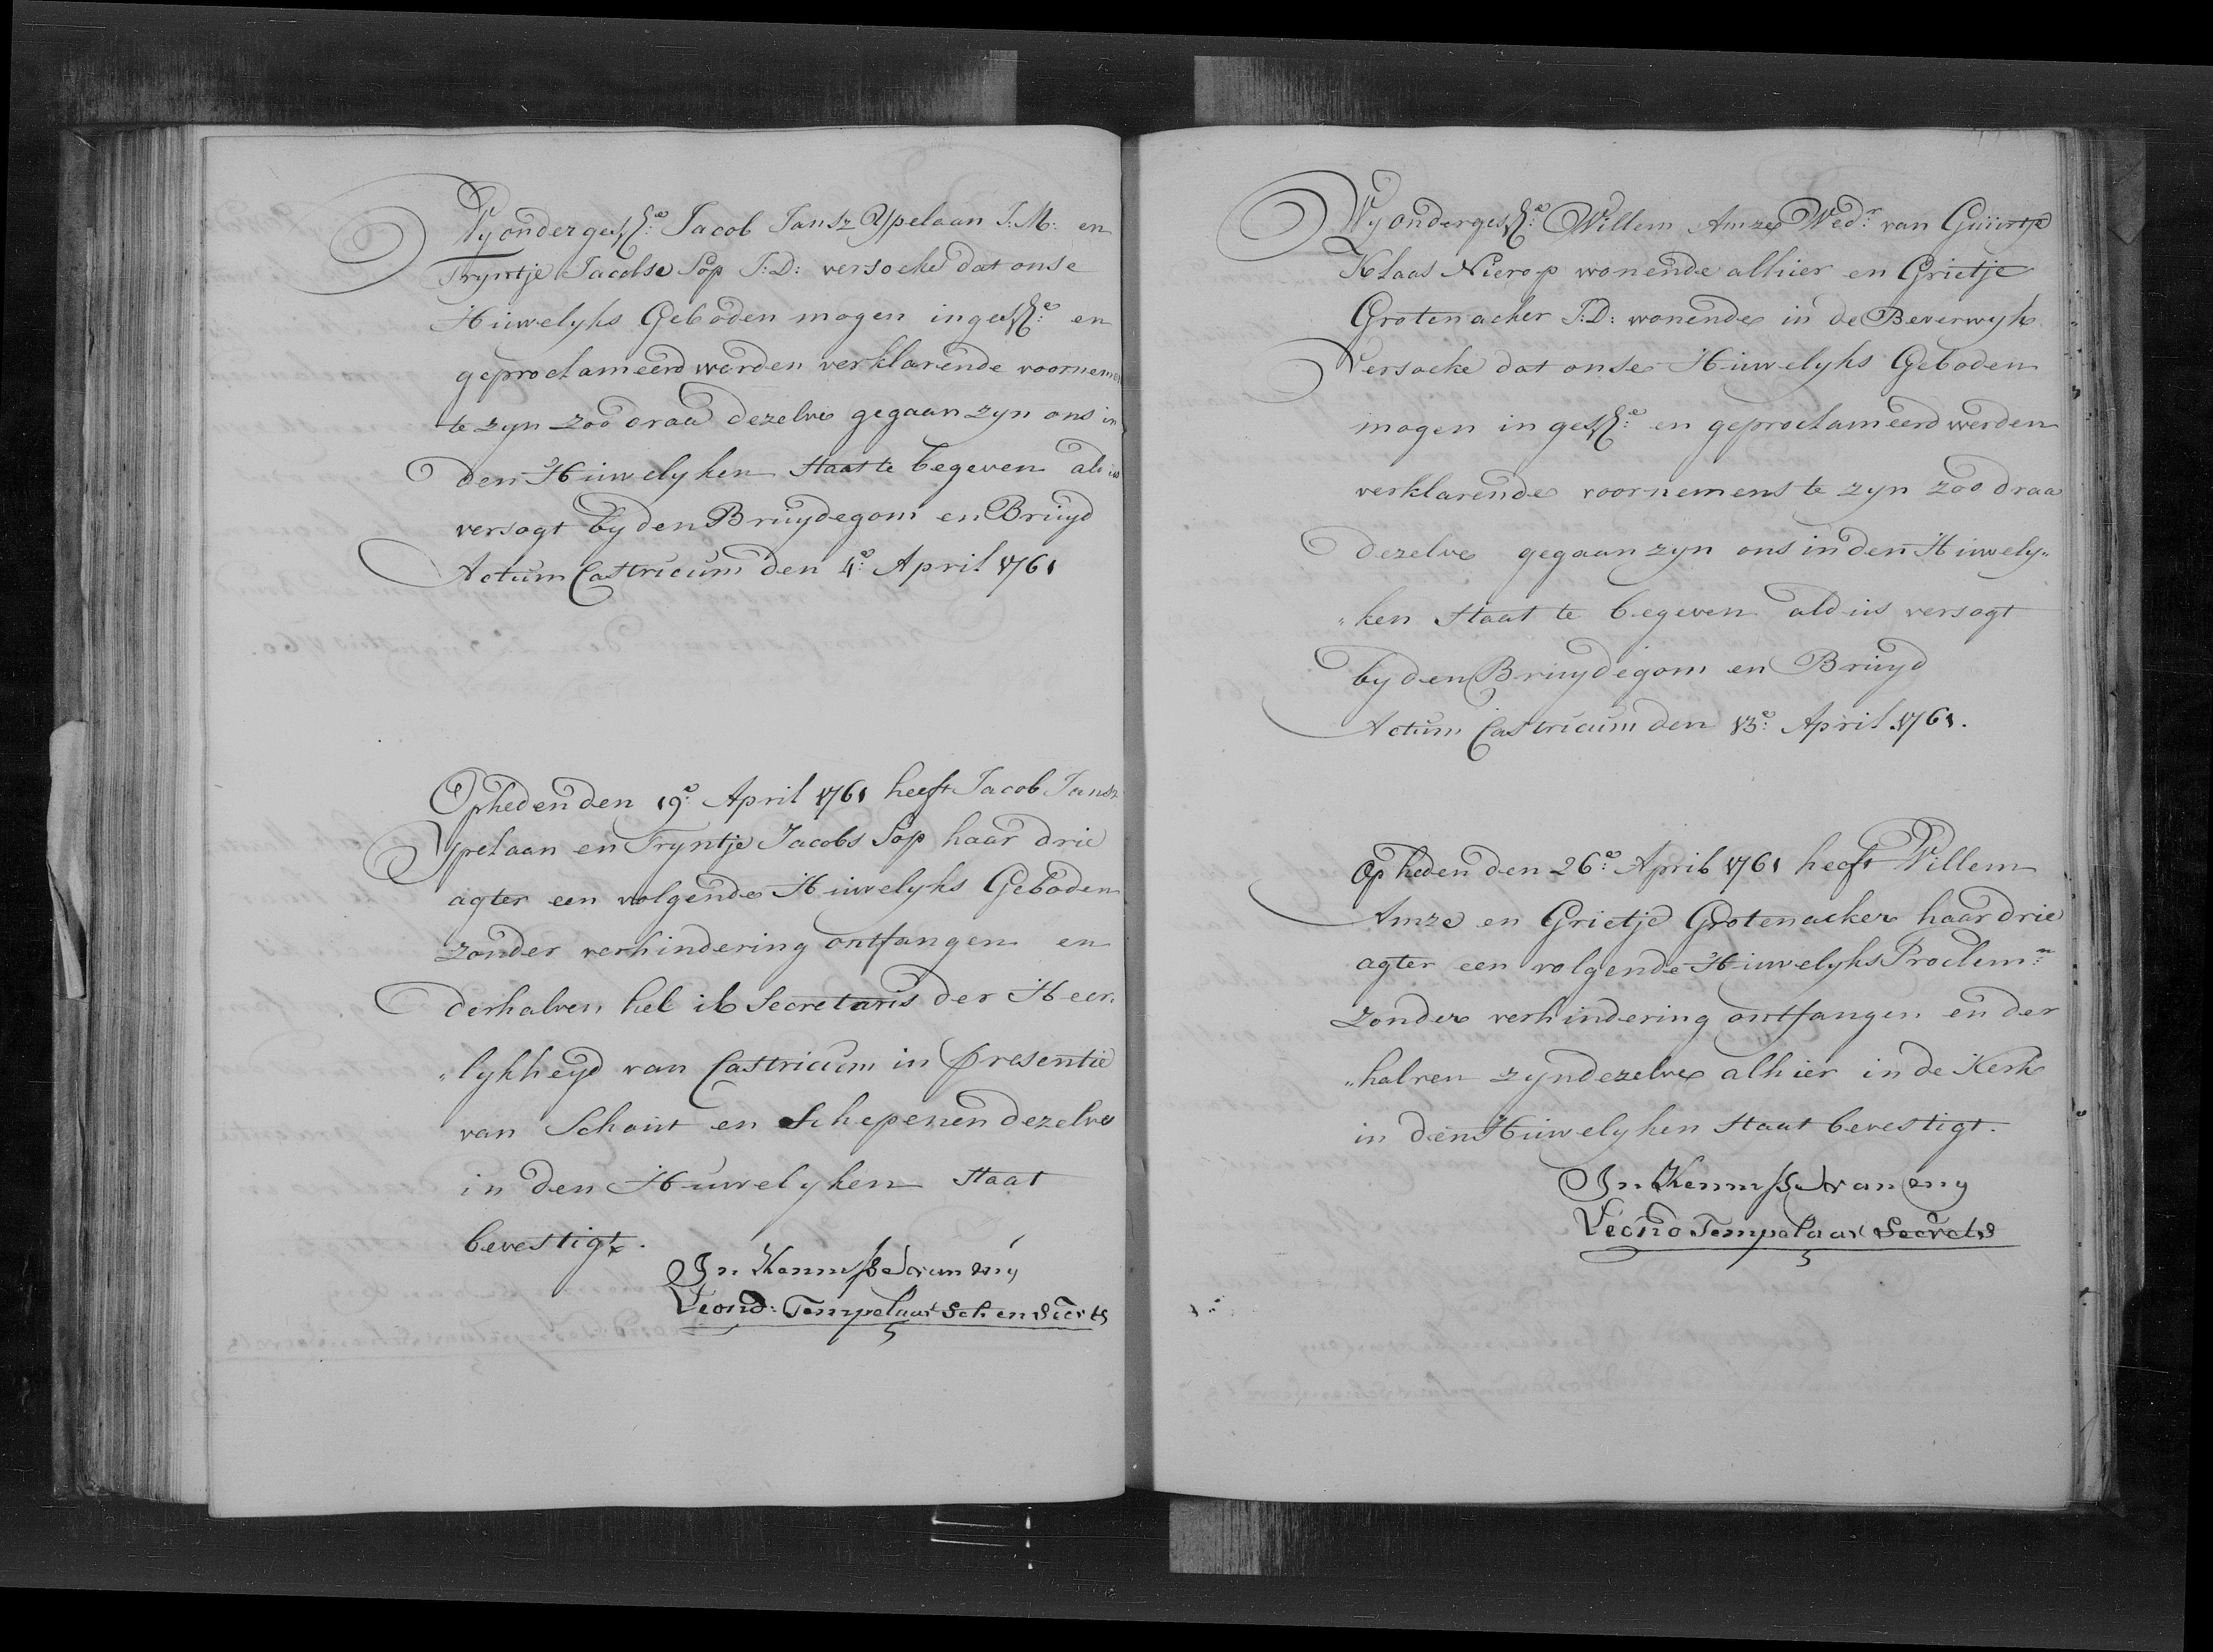 Wy ondergesz:e Jacob Jansz Yspelaan J:M: en
Tryntje Jacobse Sop J:D: versoeke dat onse
Huwelyks Geboden mogen ingesz:e en
geproclameerd werden verklarende voornemen
te zyn zoo draa dezelve gegaan zyn ons in
den Huwelyken Staat te begeven aldus
versogt by den Bruydegom en Bruyd
Actum Castricum den 4:e April 1761
Op heden den 19:e April 1761 heeft Jacob Jansz
Yspelaan en Tryntje Jacobs Sop haar drie
agter een volgende Huwelyks Geboden
zonder verhindering ontfangen en
derhalven heb ik Secretaris der Heer
"lykheyd van Castricum in presentie
van Schout en Schepenen dezelve
in den Huwelyken Staat
bevestigt.
In Kennisse van my
Leond: Tempelaar Sch en Secrets
Wy ondergesz:e Willem Amze Wed:r van Guurtje
Klaas Nierop wonende alhier en Grietje
Grotenacker J:D: wonende in de Beverwyk
Versoeke dat onse Huwelyks Geboden
mogen in gesz:e en geproclameerd werden
verklarende voornemens te zyn zoo draa
dezelve gegaan zyn ons in den Huwely"
"ken Staat te begeven aldus versogt
by den Bruydegom en Bruyd
Actum Castricum den 13:e April 1761.
Op heden den 26:e April 1761 heeft Willem
Amze en Grietje Grotenacker haar drie
agter een volgende Huwelyks Proclem:n
zonder verhindering ontfangen en der
"halven zyn dezelve alhier in de Kerk
in den Huwelyken Staat bevestigt.
In Kennisse van my
Leond Tempelaar Secrets